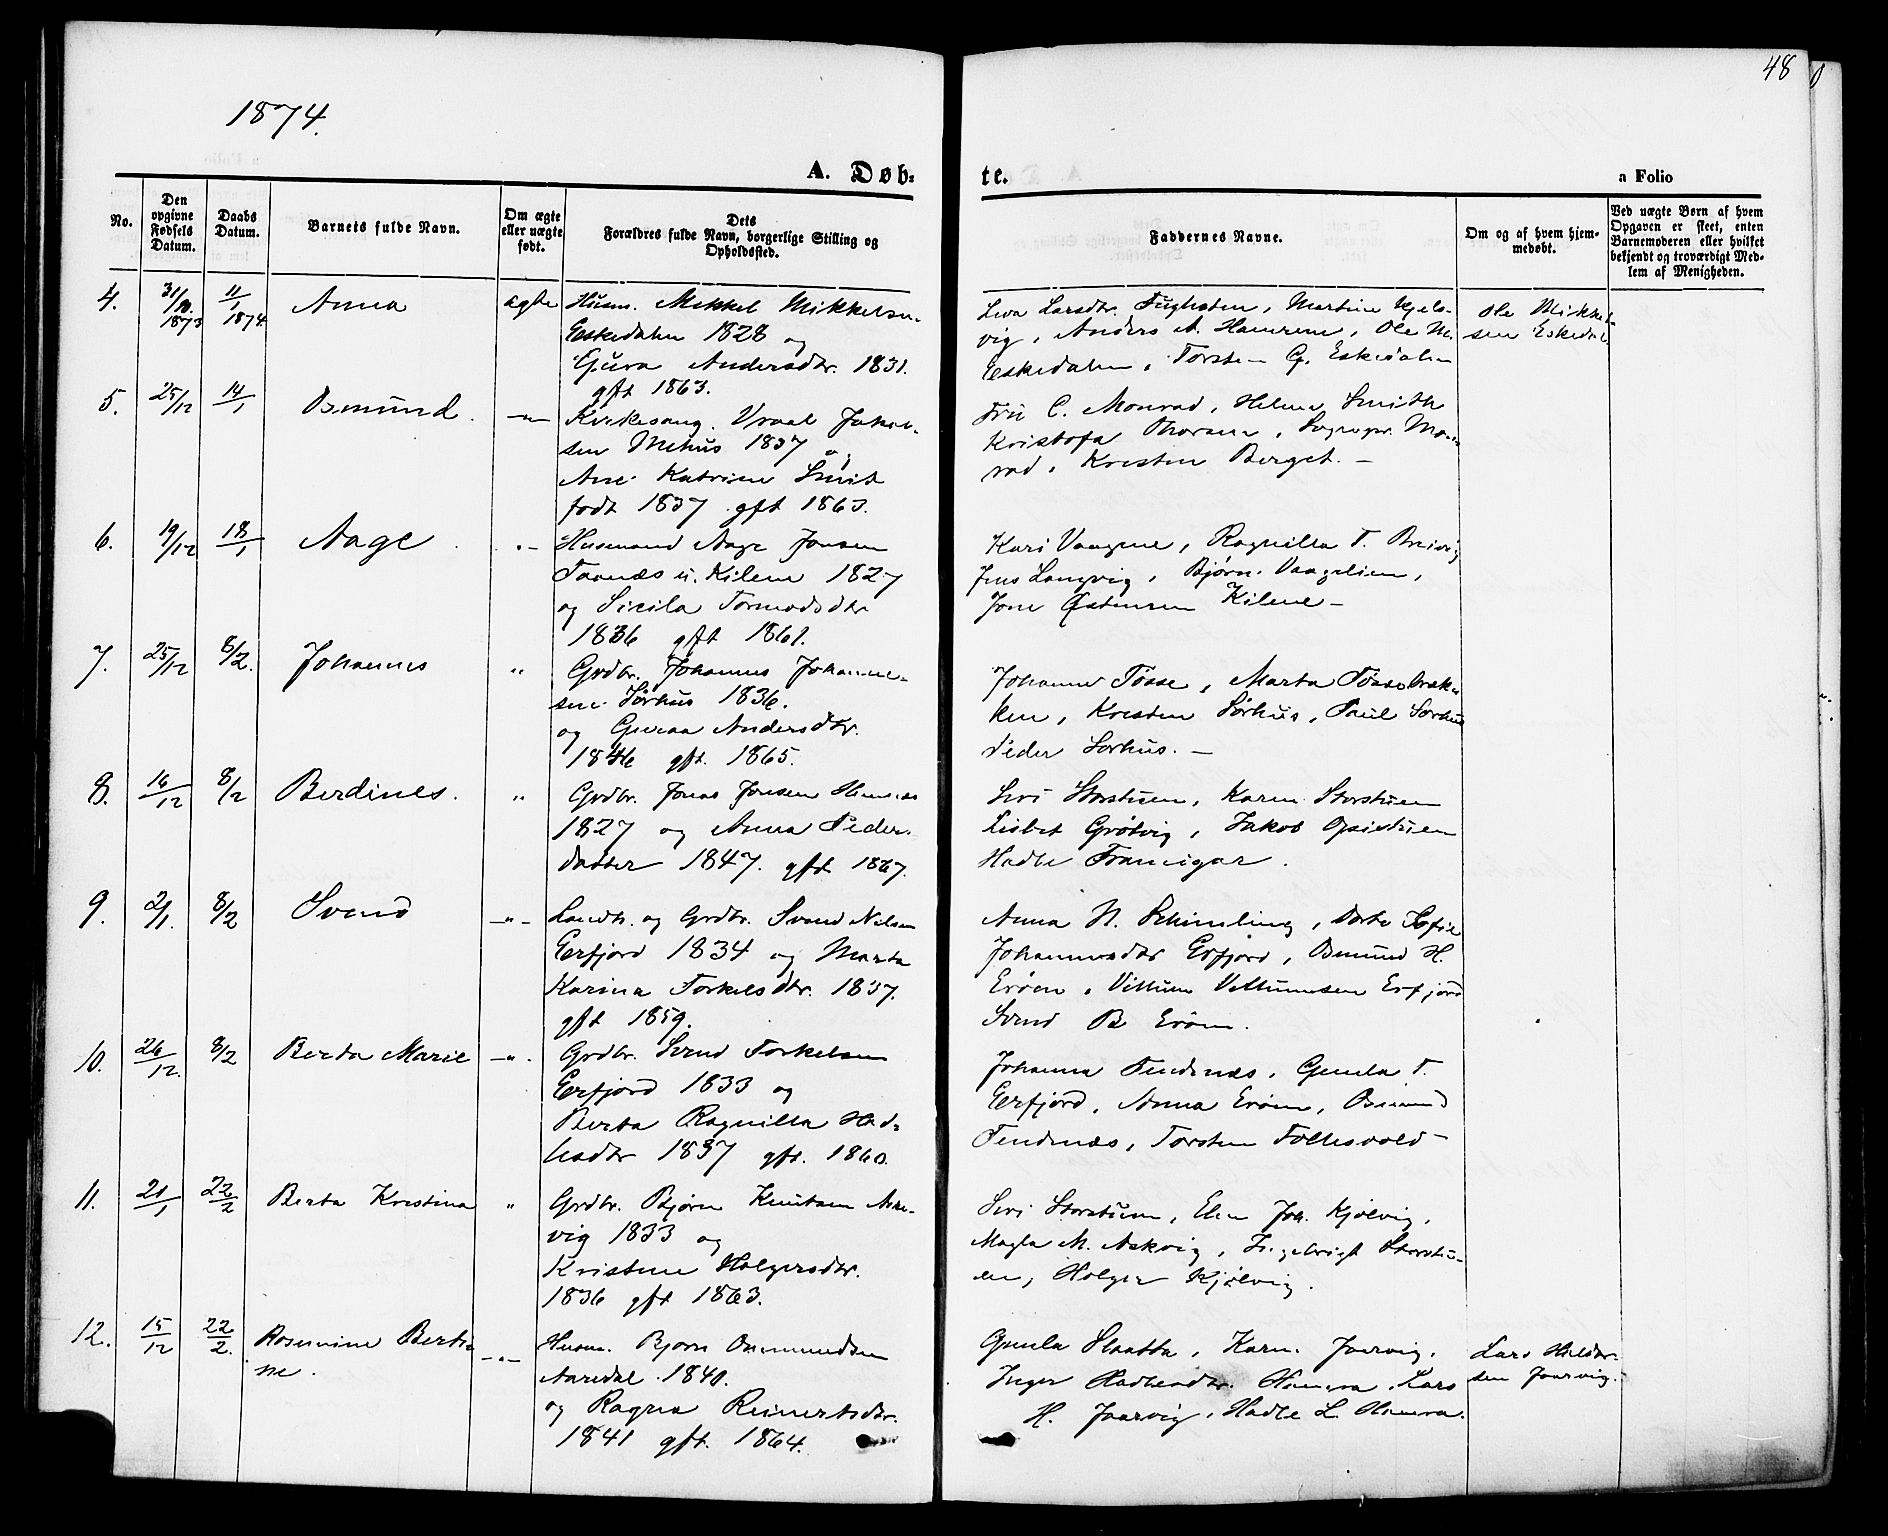 48
1874.
A. Døb-
te.
a Folio
No.
Den opgivne Fødsels Datum.
Daabs Datum.
Barnets fulde Navn.
Om ægte eller uægte født.
Dets Forældres fulde Navn, borgerlige Stilling og Opholdssted.
Faddernes Navne.
Om og af hvem hjemmedøbt.
Ved uægte Børn af hvem Opgaven er skeet, enten Barnemoderen eller hvilket bekjendt og troværdigt Medlem af Menigheden.
4. 31/10 1873 11/1 1874 Anna ægte
Husm. Mekkel Mikkelsen
Eskedalen 1828 og
Gjura Andersdtr. 1831.
gft 1863.
Siva Larsdtr. Fuglesten, Martine Kjels-
vig, Anders A. Hamrene, Ole M.
Eskedalen, Torsten G. Eskedalen
Ole Mikkel-
sen Eskedal
5. 25/12 14/1 Osmund. —"—
Kirkesang. Vraal Jakob-
sen Mehus 1837 og
Ane Katrine Smit
født 1837 gft 1863.
Fru C. Monrad, Helene Smith
Kristofa Thorsen, Sognepr. Mon-
rad, Kresten Berget. —
6. 19/12 18/1 Aage "—
Husmand Aage Jonsen
Tarnæs u. Kilene 1827
og Sicila Tormodsdtr
1836 gft 1861.
Kari Vaagene, Ragnilla T. Breivig
Jens Langvig, Bjørn Vaagelien,
Jone Østensen Kilene —
7. 25/12 8/2. Johannes "
Grdbr. Johannes Johanne-
sen Sørhus 1836.
og Guraa Andersdtr.
1846 gft. 1865.
Johanne Tøsse, Marta Tøssebrek-
ken, Kresten Sørhus, Paul Sørhus
Peder Sørhus. —
8. 16/12 8/2 Berdines. "
Grdbr. Jonas Jonsen
1827 og Anna Peder-
datter 1847. gft 1867.
Siri Storstuen, Karen Storstuen
Lisbet Grøtvig, Jakob Opistuen
Hadle
9. 2/1. 8/2 Svend —"—
Landh. og Grdbr. Svend Nilsen
Eerfjord 1834 og Marta
Karina Torkelsdtr. 1837.
gft 1859.
Anna H. Schineling, Dorte Sofie
Johannesdtr Erfjord, Osmund H.
Erøen, Vettum Vettumsen Erfjord
Svend B Erøen.
10. 26/12. 8/2 Berta Marie —".
Grdbr. Svend Torkelsen
Eerfjord 1833 og
Berta Ragnilla Had-
lesdtr 1837 gft. 1860.
Johanna Tendenæs, Gunla T.
Eerfjord, Anna Erøen, Osmund
Tendenæs, Torsten Folkesvold —
11. 21/1 22/2 Berta Kristina "
Grdbr. Bjørn Knutsen Aske-
vig 1833 og
Kristine Holgersdtr.
1836 gft 1863.
Siri Storstuen, Elen Joh. Kjølvig,
Magla M. Askvig, Ingebrigt Storstu-
en, Holger Kjølvig.
12. 15/12 22/2. Rosemine Berti-
ne. —"—
Husm. Bjørn Osmundsen
Aaredal 1840.
og Ragna Reinertsdtr.
1841 gft. 1864.
Gunla Slaatta, Karen Jaarvig,
Inger Hadlesdtr. Himera, Lars
H. Jaarvig, Hadle L. Himera.
Lars Halder-
sen Jaarvig.